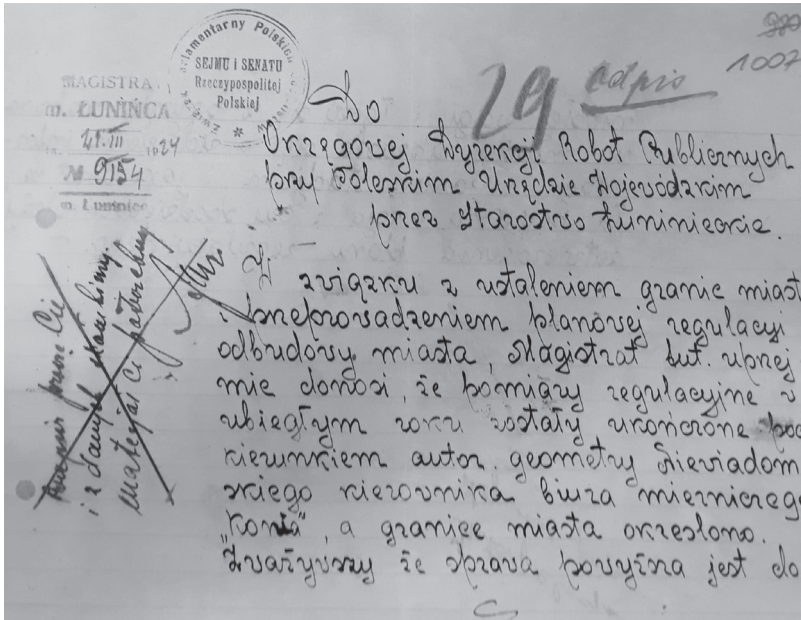 1007
29 odpis
Parlamentarny Polskich
SEJMU i SENATU
Rzeczypospolitej
Polskiej
MAGISTRA
m. ŁUNIŃCA
21.III 1924
№ 9154
m. Łuniniec
Do
Okręgowej Dyrekcji Robót Publicznych
przy Poleskim Urzędzie Wojewódzkim
przez Starostwo Łuninieckie.
W związku z ustaleniem granic miast
i przeprowadzeniem planowej regulacji
odbudowy miasta, Magistrat tut. uprzej
mie donosi, że pomiary regulacyjne w
ubiegłym roku zostały ukończone pod
kierunkiem autor. geometry Niewiadom
skiego kierownika biura mierniczego
, a granice miasta okreslono.
Zważywszy że sprawa powyższa jest do
i z danych
materjał Ci potrzebny